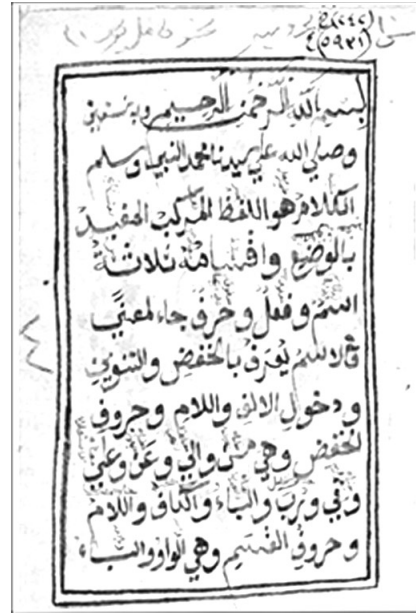 (٢٤٢)
(٥٩٣١)
بسم الله الرحمن الرحيم وبه نستعين
وصلي الله علي سيدنا محمد النبي وسلم
الكلام هو اللفظ المركب المفيد
بالوضع واقسامه ثلاثة
اسم وفعل وحرف جاء لمعني
فالاسم يعرف بالخفض والتنوين
ودخول الالف واللام وحروف
الخفض وهي من والي وعن وعلي
وفي ورب والباء والكاف واللام
وحروف القسم وهي الواو والباء